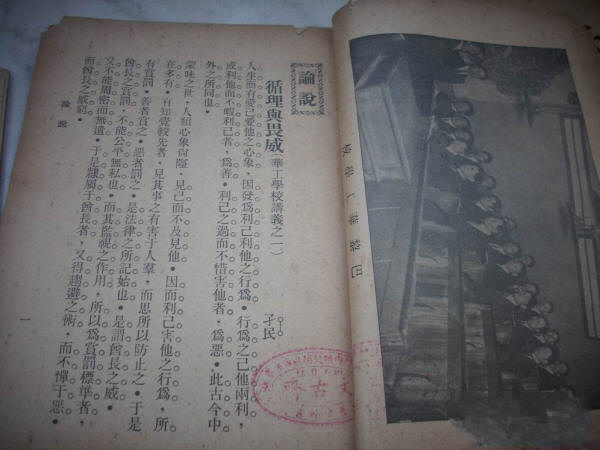 巴黎華工學校
論說
循理與畏威(華工學校講義之一) 孑民
人生而有愛己愛他之心象、因發爲利己利他之行爲。行爲之己他兩利、
或利他而不暇利己者、爲善。利己之過而不惜害他者、爲惡。此古今中
外之所同也。
蒙昧之世、人類心象尙隘、見己而不及見他。因而利己害他之行爲、所
在多有。有知覺較先者、見其事之有害于人羣、而思所以防止之。于是
有賞罰。善者賞之。惡者罰之。是法律之所託始也。是謂酋長之威。
酋長之賞罰、不能公平無私也。而其監視之作用、所以爲賞罰標準者、
又不能周密而無遺。于是隸屬于酋長者、又得趨避之術、而不憚于惡。
而酋長之威窮。
論說
一
文古齋